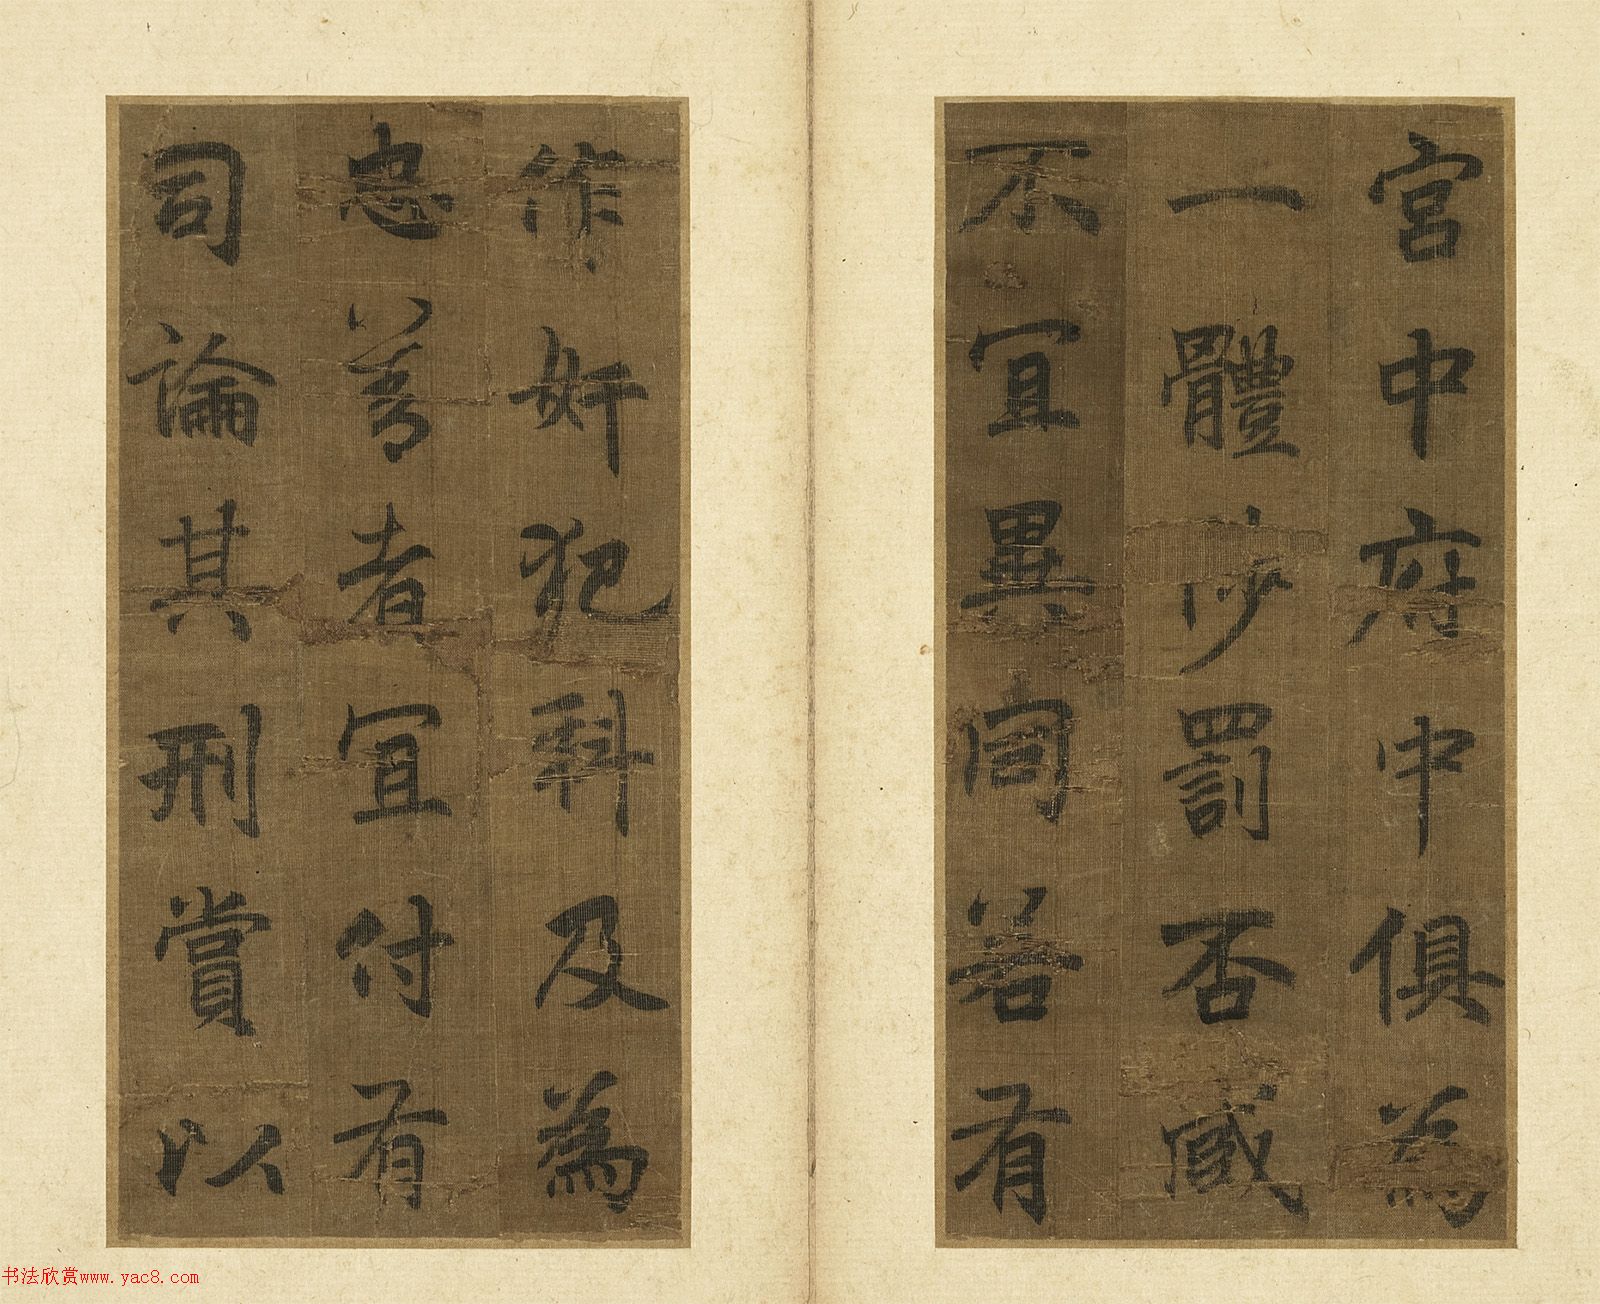 宮中府中俱為
一體陟罰否臧
不宜異同若有
作奸犯科及為
忠善者宜付有
司論其刑賞以
书法欣赏www.yac8.com